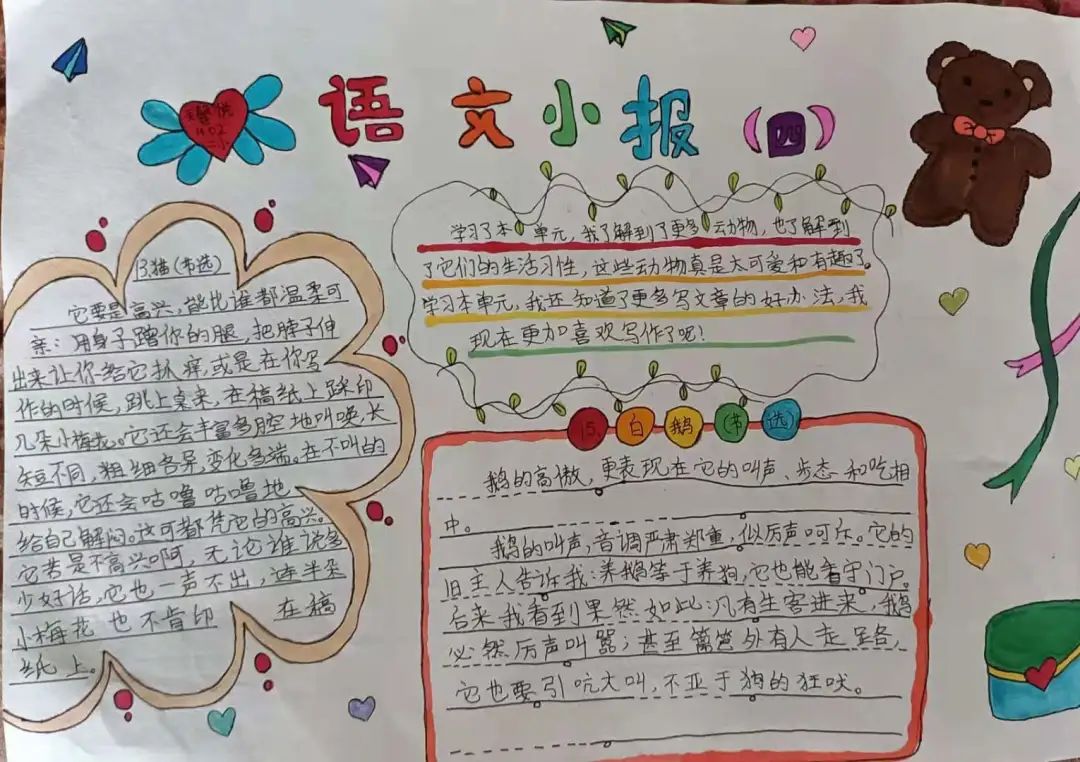 语文小报(四)
1402
二小
学习了本单元,我了解到了更多动物,也了解到
了它们的生活习性,这些动物真是太可爱和有趣了。
学习本单元,我还知道了更多写文章的好办法,我
现在更加喜欢写作了呢!
13.猫(节选)
它要是高兴,能比谁都温柔可
亲:用身子蹭你的腿,把脖子伸
出来让你给它抓痒,或是在你写
作的时候,跳上桌来,在稿纸上踩印
几朵小梅花。它还会丰富多腔地叫唤,长
短不同,粗细各异,变化多端。在不叫的
时候,它还会咕噜咕噜地
给自己解闷。这可都凭它的高兴。
它若是不高兴啊,无论谁说多
少好话,它也一声不出,连半朵
小梅花也不肯印在稿
纸上。
15.白鹅(节选)
鹅的高傲,更表现在它的叫声、步态和吃相
中。
鹅的叫声,音调严肃郑重,似厉声呵斥。它的
旧主人告诉我:养鹅等于养狗,它也能看守门户。
后来我看到果然如此:凡有生客进来,鹅
必然厉声叫嚣;甚至篱笆外有人走路,
它也要引吭大叫,不亚于狗的狂吠。